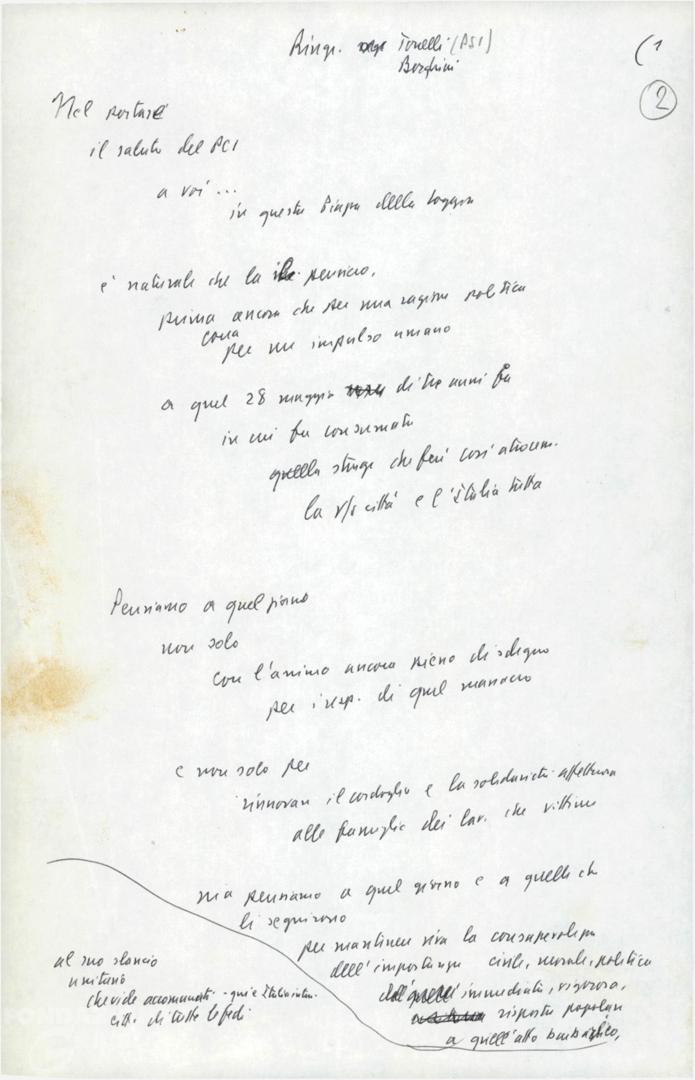 Ringr. Tonelli (PSI)
Borghini
(1
2
Nel portare
il saluto del PCI
a voi ...
in questa Piazza della Loggia
è naturale che la ns. pensiero,
prima ancora che per una ragione politica
corra
per un impulso umano
a quel 28 maggio di tre anni fa
in cui fu consumata
quella strage che ferì così atrocem.
la v/s città e l'Italia tutta
Pensiamo a quel giorno
non solo
con l'animo ancora pieno di sdegno
per i resp. di quel massacro
e non solo per
rinnovare il cordoglio e la solidarietà affettuosa
alle famiglie dei lav. che vittime
ma pensiamo a quel giorno e a quelli che
li seguirono
per mantenere viva la consapevolezza
dell'importanza civile, morale, politica
dell' immediata, vigorosa,
risposta popolare
a quell'atto barbarico,
al suo slancio
unitario
che vide accomunati - qui e
citt. di tutte le fedi